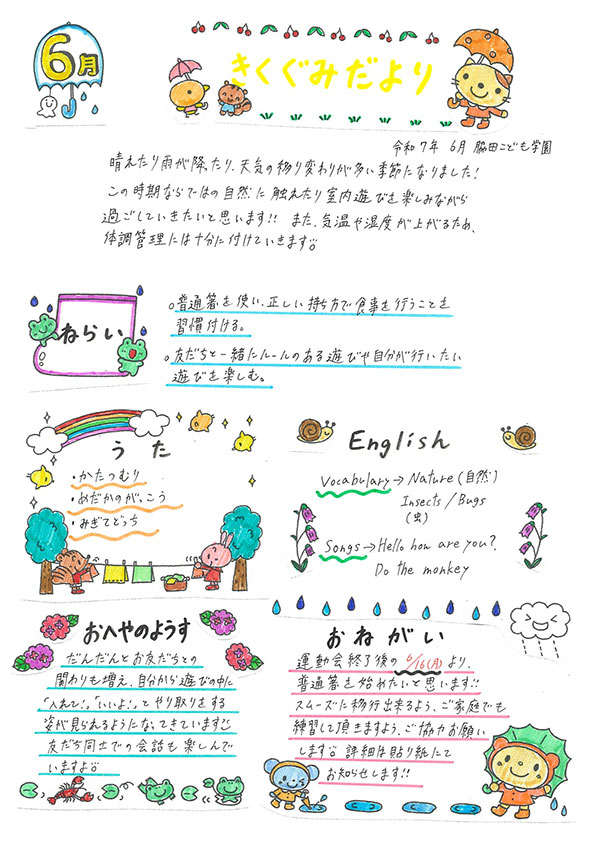 6月
きくぐみだより
令和7年 6月 脇田こども学園
晴れたり雨が降たり、天気の移り変わりが多い季節になりました!
この時期ならではの自然に触れたり室内遊びを楽しみながら
過ごしていきたいと思います!! また、気温や湿度が上がるため、
体調管理には十分に付けていきます。
ねらい
○普通箸を使い、正しい持ち方で食事を行うことを
習慣付ける。
○友だちと一緒にルールのある遊びや自分が行いたい
遊びを楽しむ。
うた
・かたつむり
・めだかのがっこう
・みぎてどっち
English
Vocabulary→Nature(自然)
Insects/Bugs
(虫)
Songs→Hello how are you?
Do the monkey
おへやのようす
だんだんとお友だちとの
関わりも増え、自分から遊びの中に
「入れて!」「いいよ!」とやり取りをする
姿が見られるようになってきています!
友だち同士での会話も楽しんで
いますよ。
おねがい
運動会終了後の6/16(月)より、
普通箸を始めたいと思います!!
スムーズに移行出来るよう、ご家庭でも
練習して頂きますよう、ご協力お願い
します。詳細は貼り紙にて
お知らせします!!